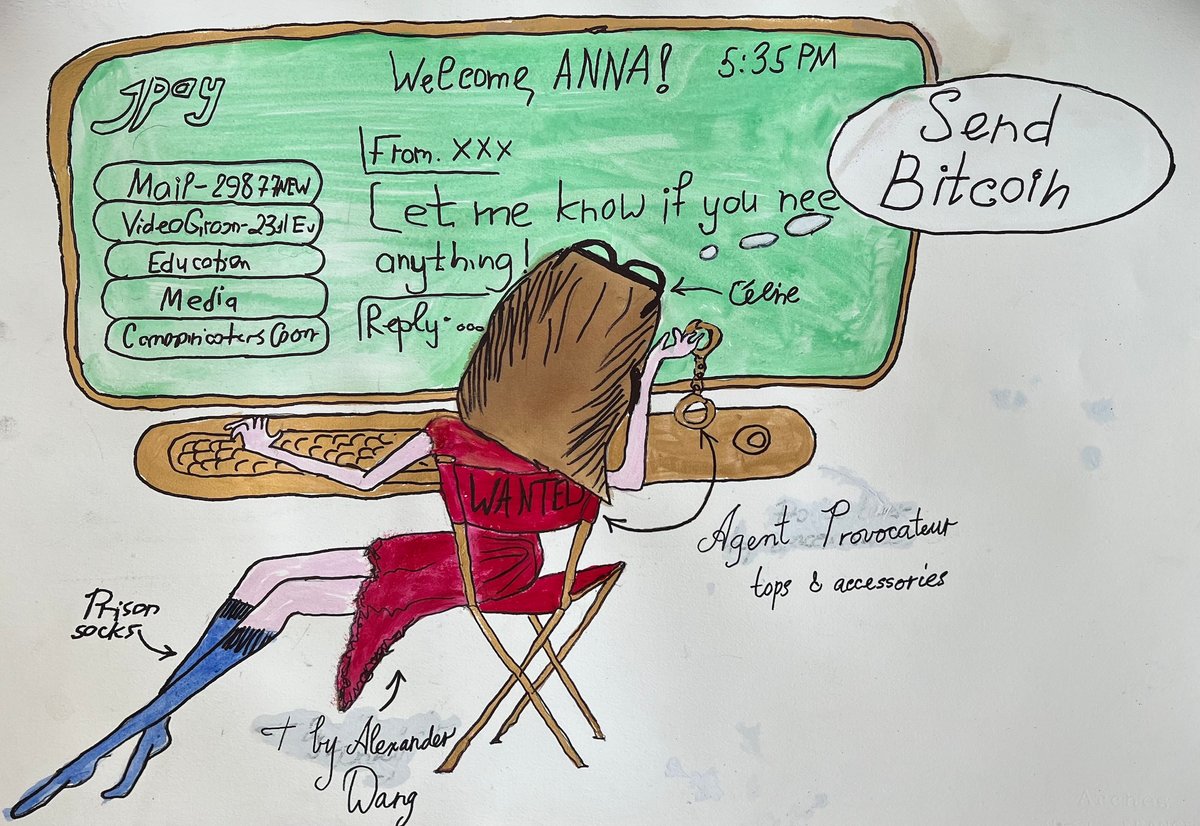 Welcome, ANNA!
5:35 PM
jpay
From. XXX
Mail-29877NEW
Let me know if you nee
anything!
Education
Media
Reply....
Send
Bitcoin
Céline
WANTED
Agent Provocateur
tops & accessories
Prison
socks
T by Alexander
Wang